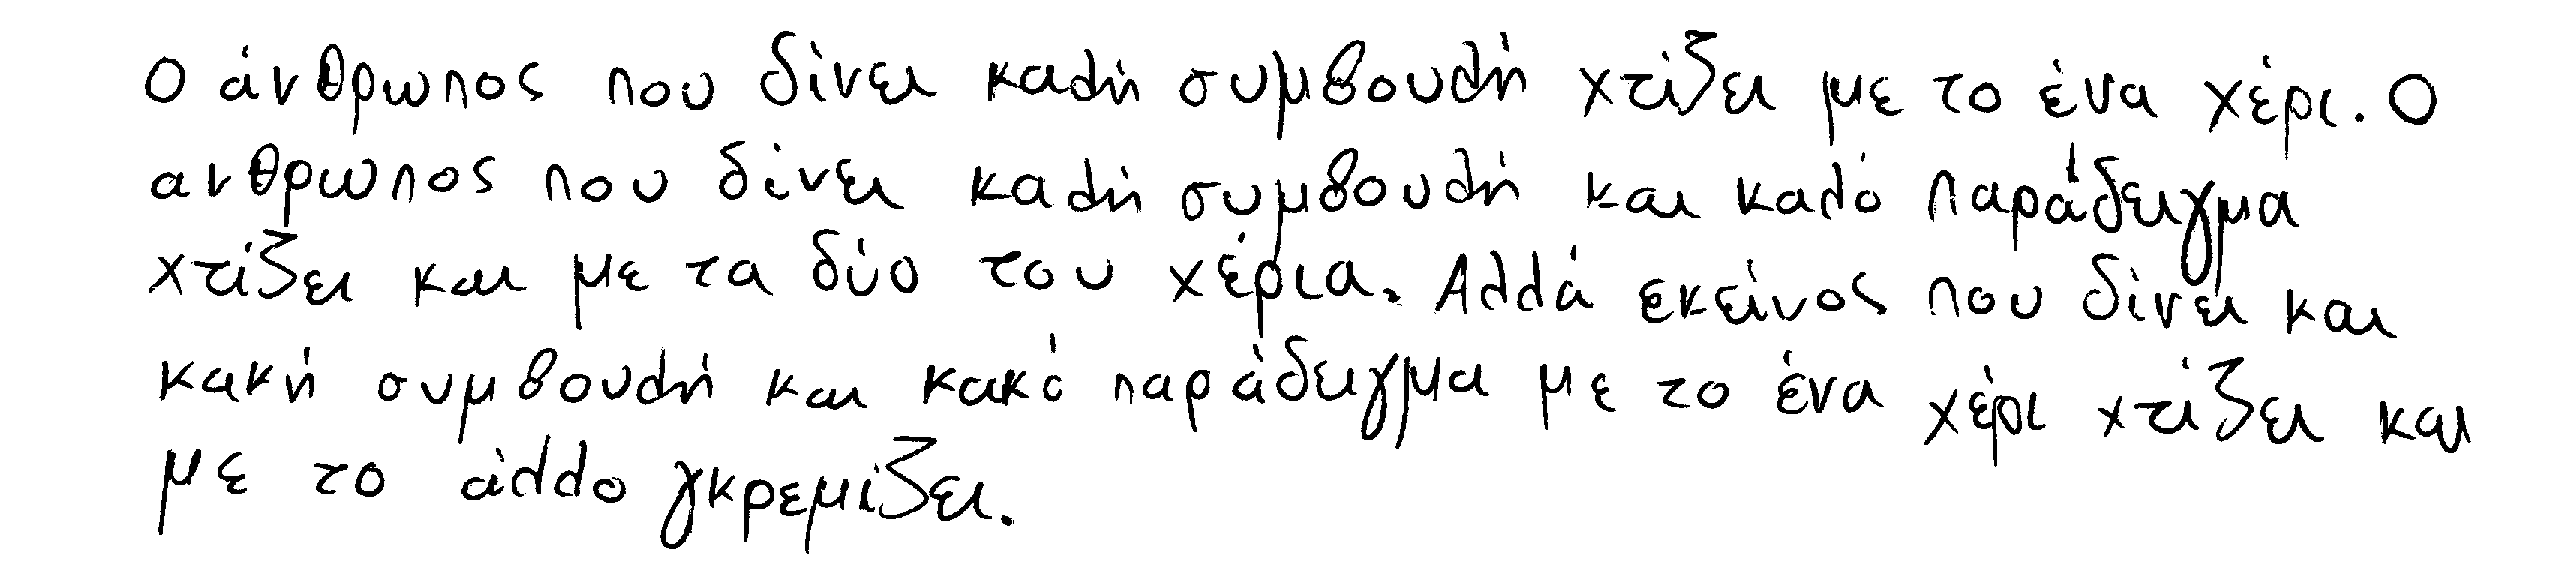 Ο άνθρωπος που δίνει καλή συμβουλή χτίζει με το ένα χέρι. Ο
ανθρωπος που δίνει καλή συμβουλή και καλό παράδειγμα
χτίζει και με τα δύο του χέρια. Αλλά εκείνος που δίνει και
κακή συμβουλή και κακό παράδειγμα με το ένα χέρι χτίζει και
με το άλλο γκρεμίζει.